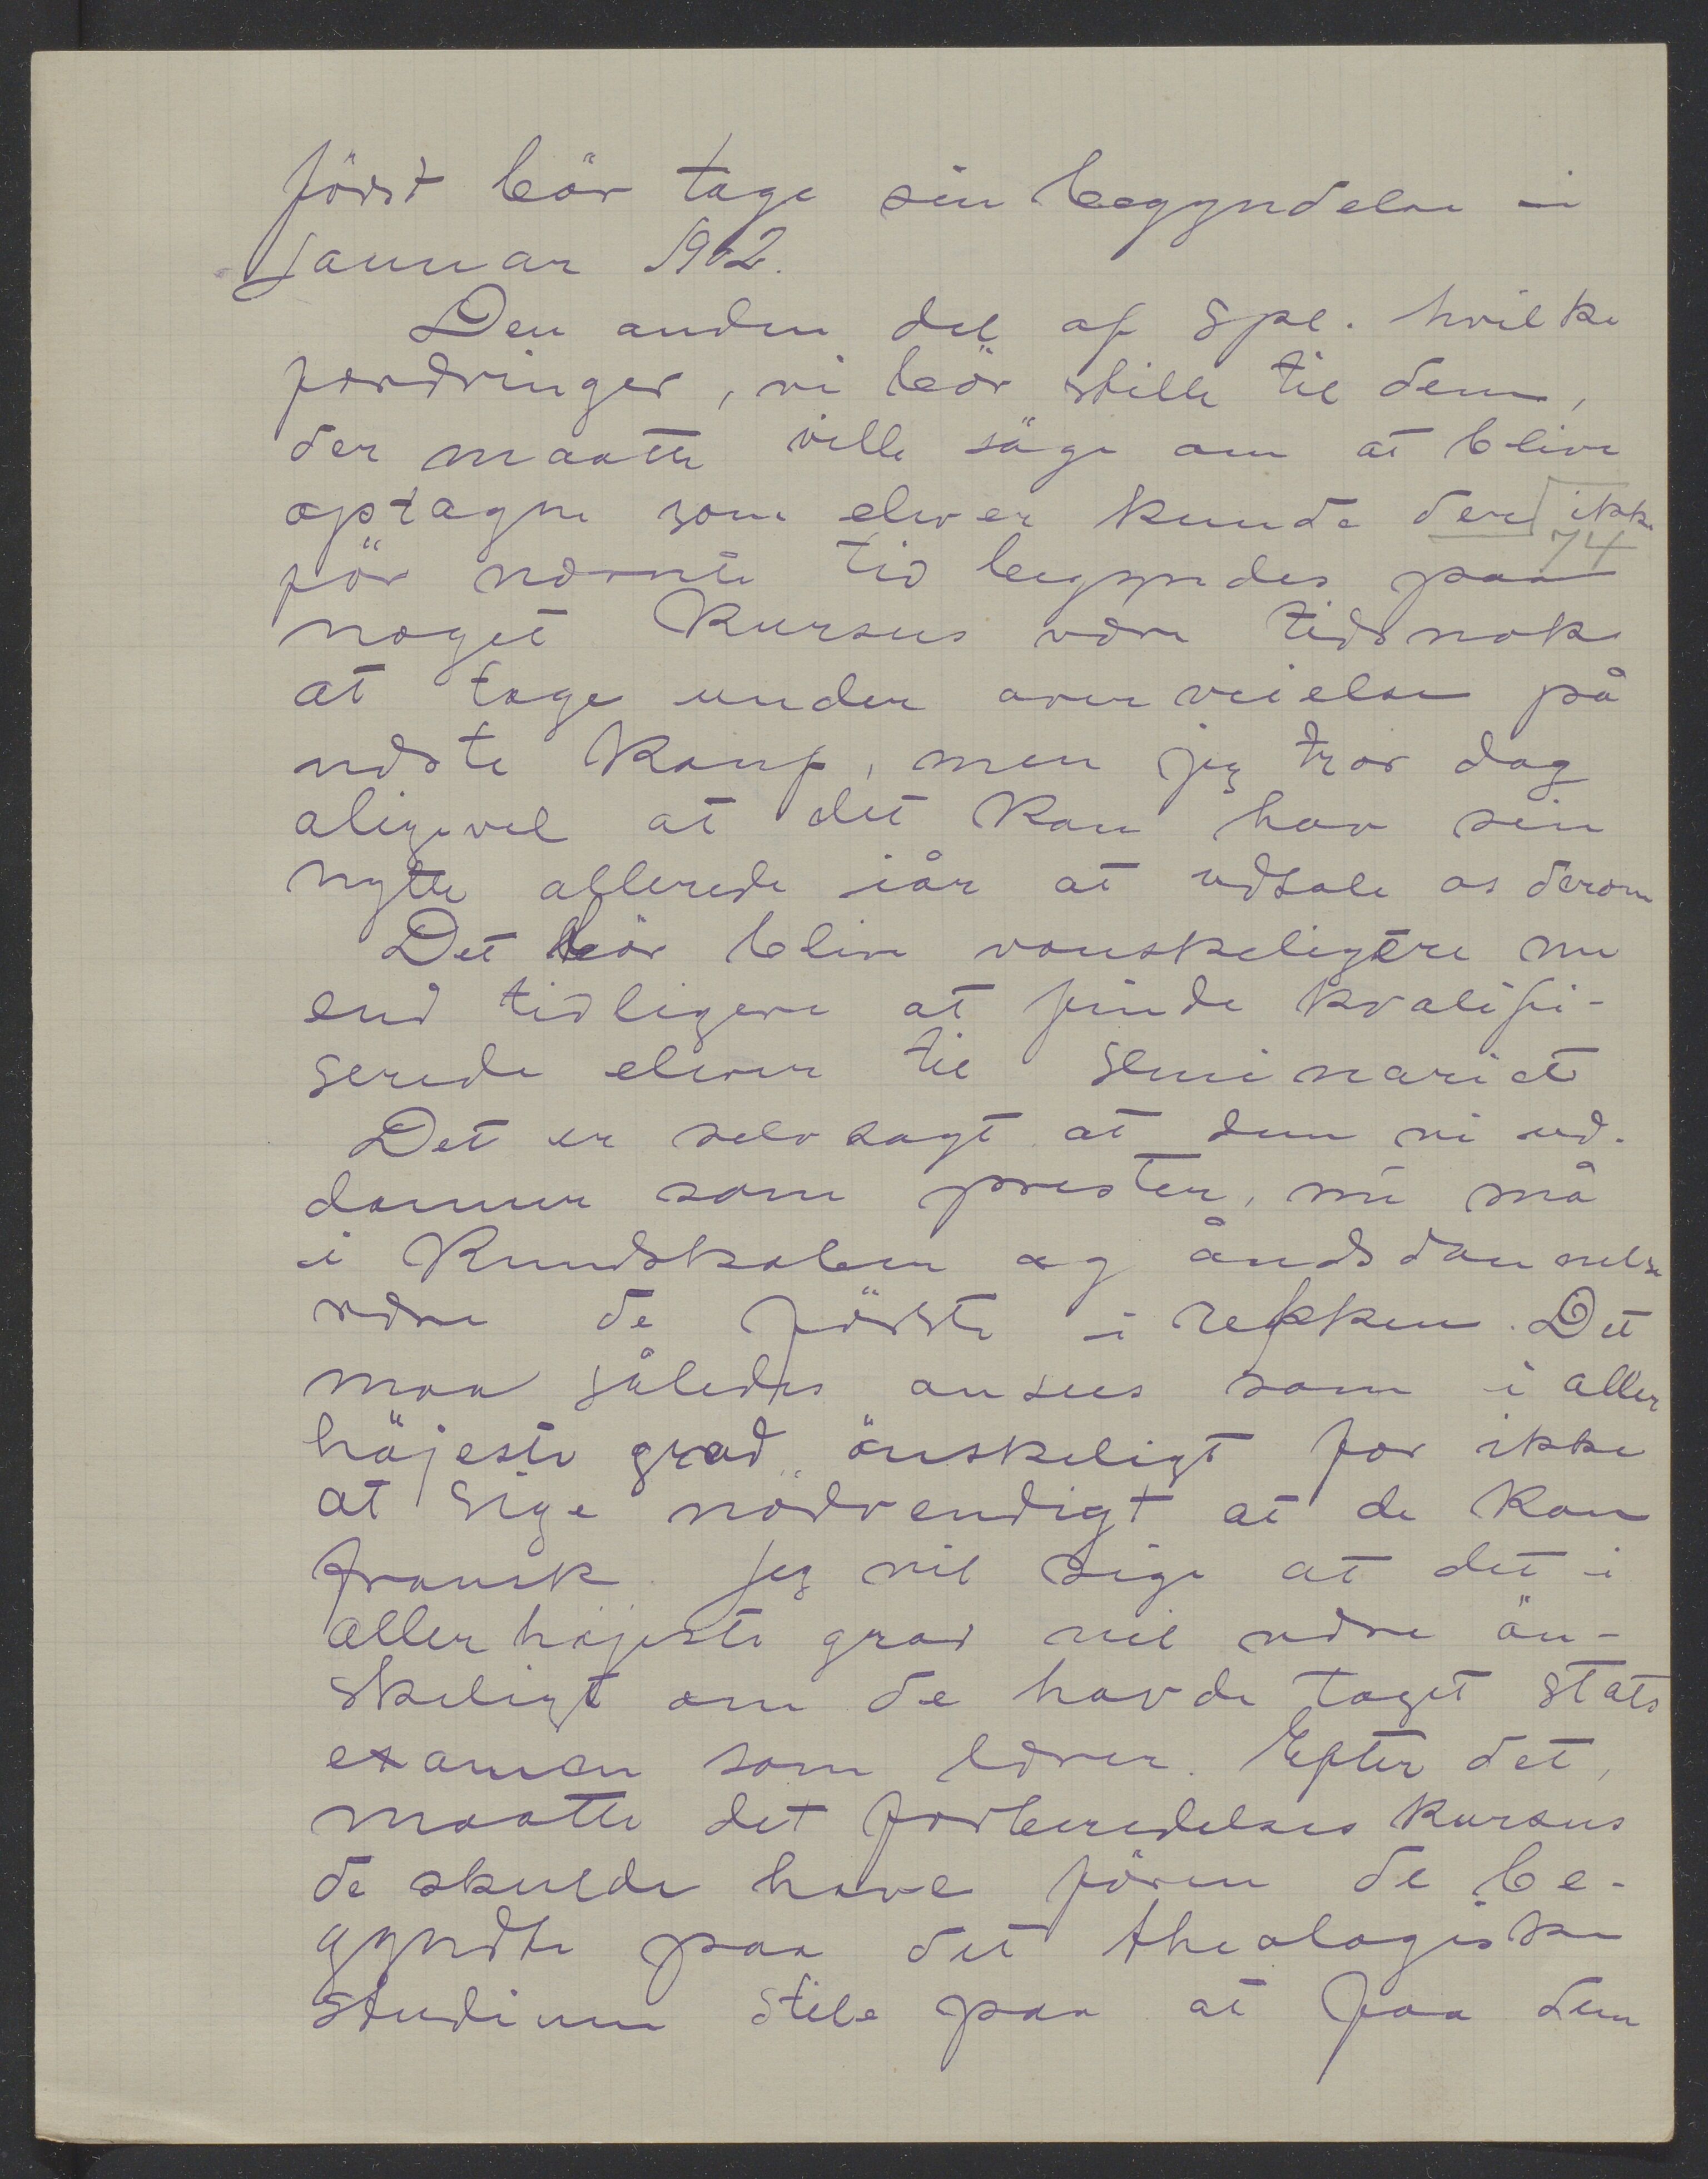 först bör tage sin begyndelse i
Januar 1902.
Den anden del af Spl. hvilke
fordringer, vi bör stille til dem,
der maatte ville söge om at blive
optagne som elever kunde der ikke
74
för nævnte tid begyndes paa
noget kursus være tidsnok
at tage under overveielse på
næste konf, men jeg tror dog
aligevel at det kan hav sin
nytte allerede iår at udtale os derom
Det bör blive vanskeligere nu
end tidligere at finde kvalifi-
serede elever til Seminariet
Det er selvsagt at dem vi ud-
danner som prester, må
i Kundskaber og åndsdannelse
være de förste i rekken. Det
maa således ansees som i aller
höjeste grad önskeligt for ikke
at sige nödvendigt at de kan
fransk. Jeg vil sige at det i
allerhöjeste grad vil være ön-
skeligt om de havde taget Stats
examen som lærer. Efter det,
maatte det forberedelses kursus
de skulde have fören de be-
gyndte paa det theologiske
studium stile paa at faa dem